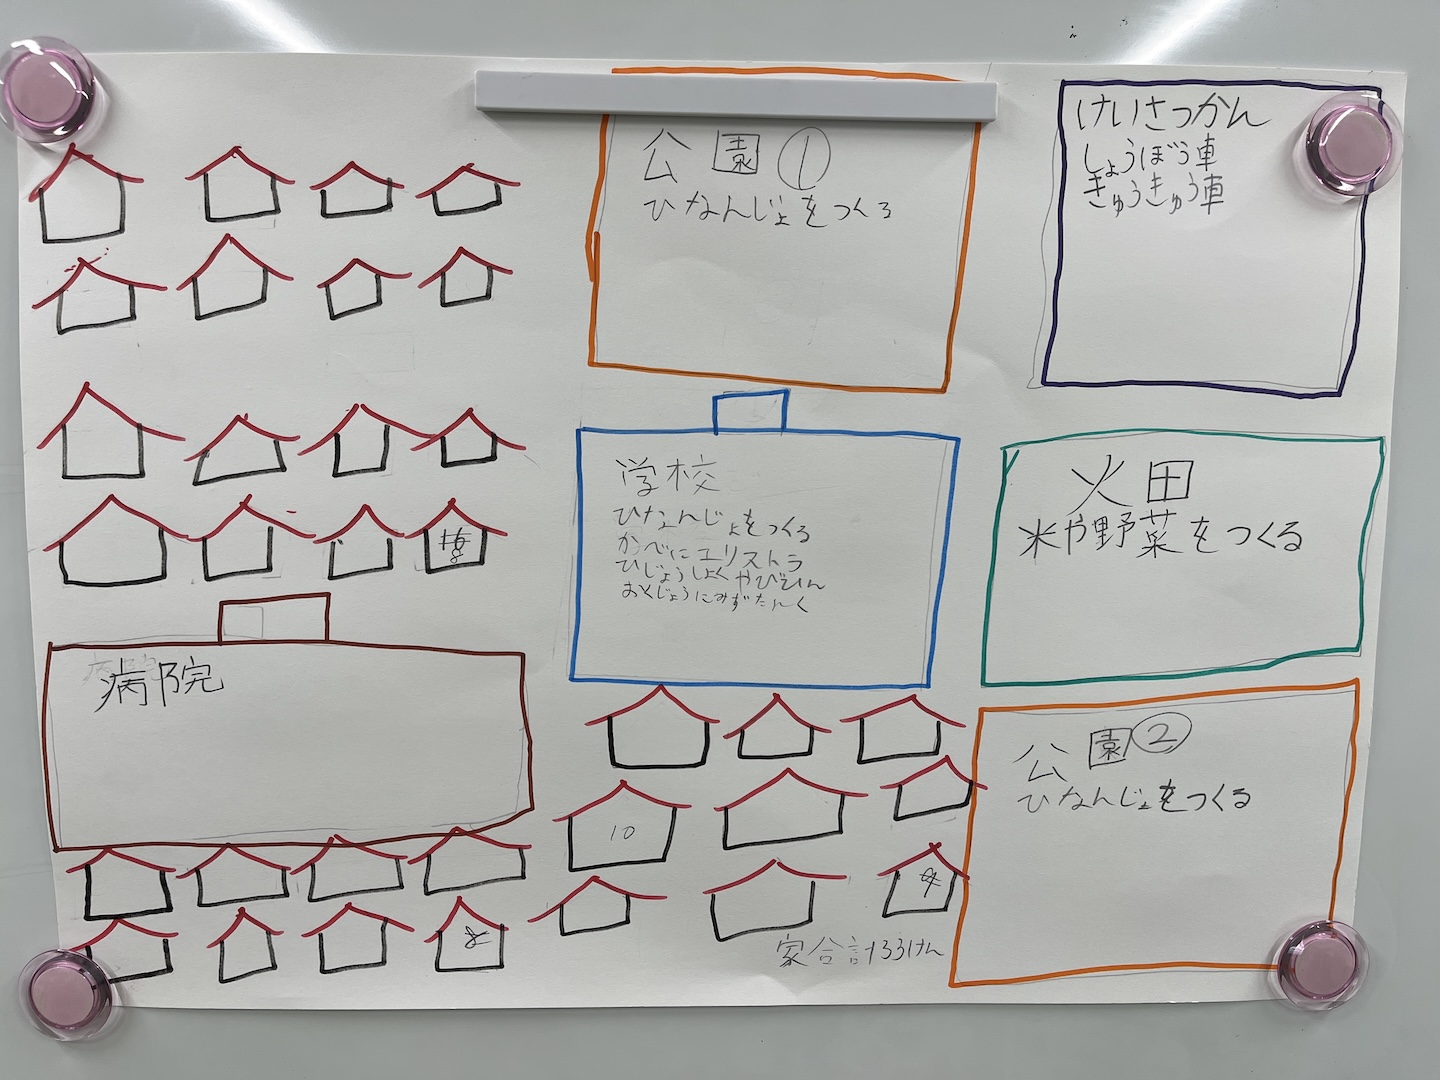 公園①
ひなんじょをつくる
けいさつかん
しょうぼう車
きゅうきゅう車
学校
ひなんじょをつくる
かべにエリストラ
ひじょうしょくやびひん
おくじょうにみずたんく
火田
米や野菜をつくる
病院
公園②
ひなんじょをつくる
10
家合計33けん